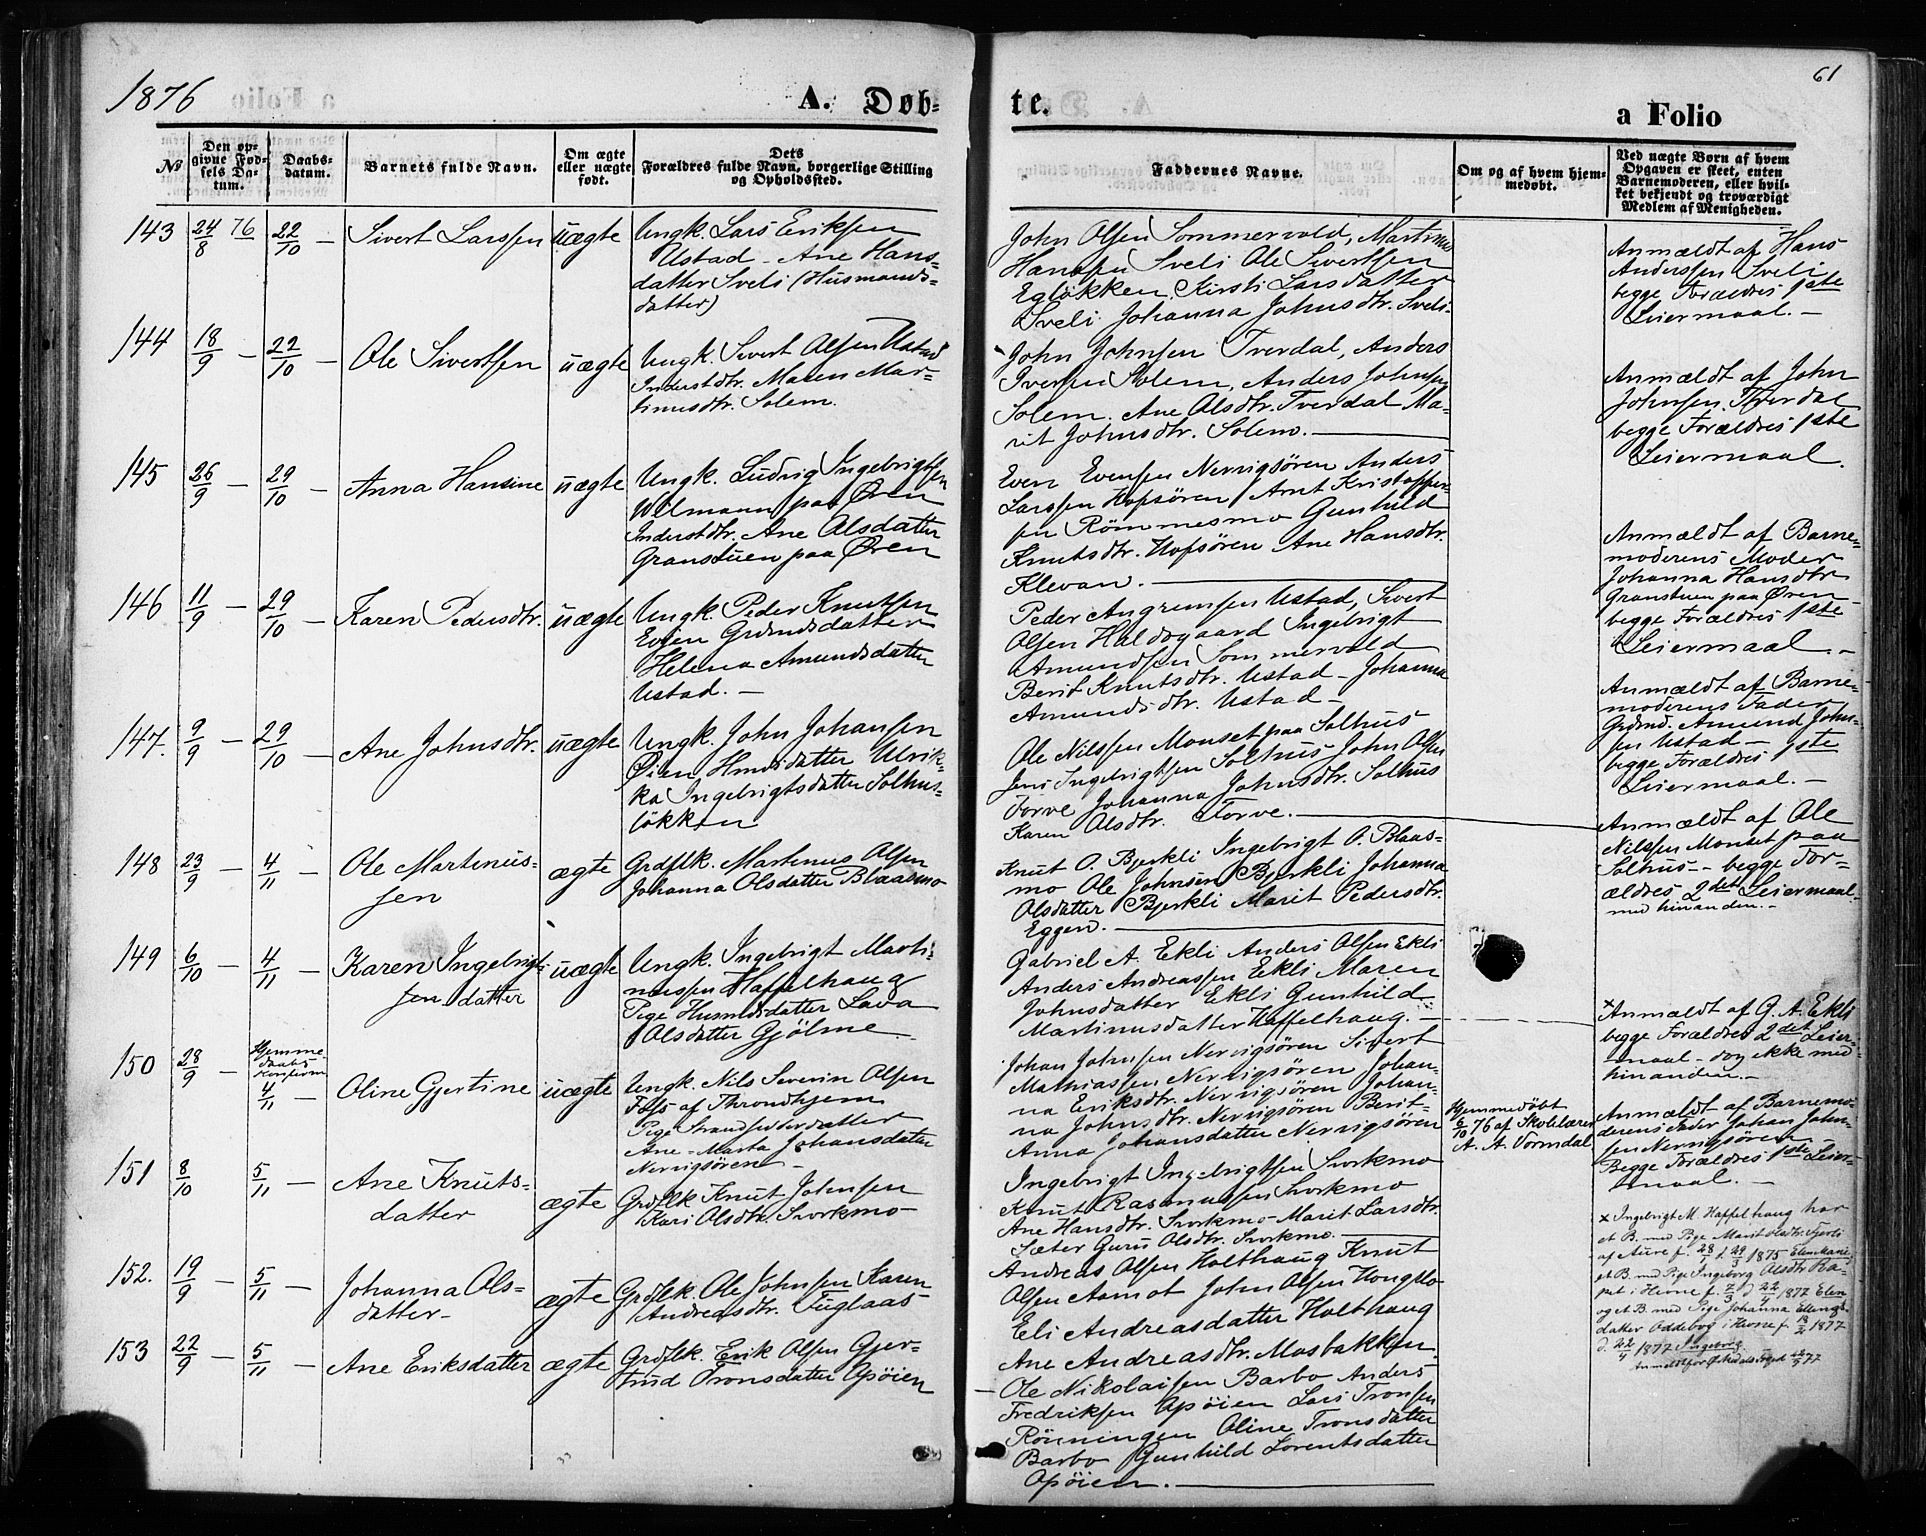 1876
A. Døb-
te.
a Folio
61
№
Den op-
givne Fød-
sels Da-
tum.
Daabs-
datum.
Barnets fulde Navn.
Om ægte
eller uægte
født.
Dets
Forældres fulde Navn, borgerlige Stilling
og Opholdssted.
Faddernes Navne.
Om og af hvem hjem-
medøbt.
Ved uægte Børn af hvem
Opgaven er skeet, enten
Barnemoderen, eller hvil-
ket bekjendt og troværdigt
Medlem af Menigheden.
143 24/8 76 22/10 — Sivert Larssen uægte
Ungk. Lars Eriksen
Ustad - Ane Hans-
datter Sveli (Husmands-
datter)
John Olsen Sommervold, Martinus
Hansen Sveli Ole Sivertsen
Egløkken. Kirsti Larsdatter
Sveli. Johanna Johnsdtr. Sveli.
Anmældt af Hans
Anderssen Sveli
begge Forældres 1ste
Leiermaal. —
144 18/9 — 22/10 — Ole Sivertsen uægte
Ungk. Sivert Olsen Ustad
Inderstdtr. Maren Mar-
tinusdtr. Solem.
John Johnsen Tverdal, Anders
Iversen Solem, Anders Johnsen
Solem. Ane Olsdtr. Tverdal Ma-
rit Johnsdtr. Solem. —
Anmældt af John
Johnsen Tverdal
begge Forældres 1ste
Leiermaal.
145 26/9 — 29/10 — Anna Hansine uægte
Ungk. Ludvig Ingebrigtsen
Wilmann paa Øren
Inderstdtr. Ane Olsdatter
Granstuen paa Øren
Even Evensen Nervigsören Anders
Larssen Hofsören Arnt Kristoffer-
sen Römmesmo Gunhild
Knutsdtr. Hofsören Ane Hansdtr.
Klevan. —
Anmældt af Barne-
moderens Moder
Johanna Hansdtr
Granstuen paa Øren
begge Forældres 1ste
Leiermaal. —
146 11/9 — 29/10 — Karen Pedersdtr. uægte
Ungk. Peder Knutsen
Evjen Grdmdsdatter
Helena Amundsdatter
Ustad. —
Peder Angrimsen Ustad, Sivert
Olsen Haldogaard Ingebrigt
Amundsen Sommervold
Berit Knutsdtr. Ustad - Johanna
Amundsdtr. Ustad —
Anmældt af Barne-
moderens Fader
Grdmd. Amund John-
sen Ustad —
begge Forældres 1ste
Leiermaal. —
147. 9/9 — 29/10 — Ane Johnsdtr. uægte
Ungk. John Johansen
Øien Hmdsdatter Ulrik-
ka Ingebrigtsdatter Solhus-
løkken
Ole Nilssen Monset paa Solhus
Jens Ingebrigtsen Solhus John Olsen
Torve Johanna Johnsdtr. Solhus
Karen Olsdtr. Torve. —
Anmældt af Ole
Nilssen Monset paa
Solhus - begge For-
ældres 2det Leiermaal
med hinanden. —
148 23/9 — 4/11 — Ole Martinus-
sen ægte
Grdflk. Martinus Olsen
Johanna Olsdatter Blaasmo
Knut O. Bjerkli Ingebrigt O. Blaas-
mo Ole Johnsen Bjerkli Johanna
Olsdatter Bjerkli Marit Pedersdtr.
Eggen. —
149 6/10 — 4/11 — Karen Ingebrigt-
sendatter uægte
Ungk. Ingebrigt Marti-
nussen Haffelhaug
Pige Husmdsdatter Lava
Olsdatter Gjölme
Gabriel A. Ekli Anders Olsen Ekli
Anders Andreassen Ekli Maren
Johnsdatter Ekli Gunhild
Martinusdatter Haffelhaug.
× Anmældt af G. A. Ekli
begge Forældres 2det Leier-
maal - dog ikke med
hinanden. —
150 28/9 — Hjemme-
daabs
Konfirm
4/11 — Oline Gjertine uægte
Ungk. Nils Severin Olsen
Foss af Throndhjem
Pige Strandsidderdatter
Ane-Marta Johansdatter
Nervigsören —
Johan Johnsen Nervigsören Sivert
Mathiassen Nervigsören Johan-
na Eriksdtr. Nervigsören Johan-
na Johnsdtr. Nervigsören Berit-
Anna Johansdatter Nervigsören
Hjemmedøbt
6/10 76 af Skolelærer
A. A. Vormdal
Anmældt af Barnemo-
derens Fader Johan John-
sen Nervigsören
Begge Forældres 1ste Leier-
maal. —
151 8/10 5/11 — Ane Knuts-
datter ægte
Grdflk Knut Johnsen
Kari Olsdtr. Svorkmo
Ingebrigt Ingebrigtsen Svorkmo
Knut Rasmussen Svorkmo
Ane Hansdtr. Svorkmo - Marit Larsdtr.
Sæter Guru Olsdtr. Svorkmo. —
× Ingebrigt M. Haffelhaug har
et B. med Pige Marit Olsdtr. Fjerli
af Aure f. 28/1 d. 29/3 1875 Elen Marie,
et B. med Pige Ingeborg Olsdtr Ra-
pet i Hevne f. 2/3 d 22/4 1877 Elen
og et B. med Pige Johanna Ellings-
datter Oddebog i Hevne f. 13/2 1877
d. 22/4 1877 Ingebrig.
152. 19/9 — 5/11 — Johanna Ols-
datter- ægte
Grdflk. Ole Johnsen Karen
Andreasdtr. Fuglaas
Andreas Olsen Holthaug Knut
Olsen Aamot John Olsen Kongslo
Eli Andreasdatter Holthaug
Ane Andreasdtr. Mosbakken.
153 22/9 — 5/11 — Ane Eriksdatter ægte
Grdflk. Erik Olsen Gjer-
trud Tronsdatter Opöien
Ole Nikolaisen Barbo Anders
Fredriksen Opöien Lars Tronsen
Rönningen Oline Tronsdatter
Barbo Gunhild Lorentsdatter
Opöien. —